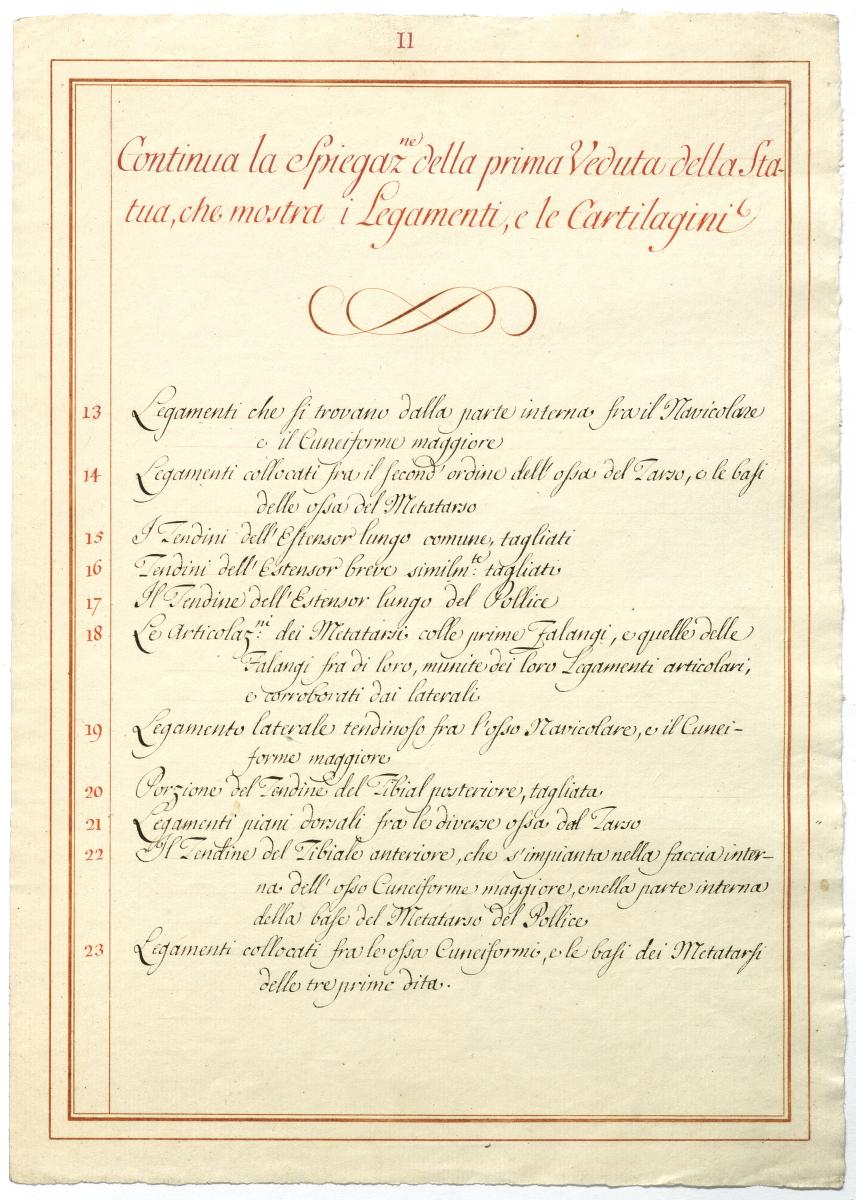 II
Continua la Spiegaz.ne della prima Veduta della Sta-
tua, che mostra i Legamenti, e le Cartilagini
13 Legamenti che si trovano dalla parte interna fra il Navicolare
e il Cuneiforme maggiore
14 Legamenti collocati fra il second' ordine dell' ossa del Tarso, e le basi
delle ossa del Metatarso
15 I Tendini dell' Estensor lungo comune, tagliati
16 Tendini dell' Estensor breve similm.te tagliati
17 Il Tendine dell' Estensor lungo del Pollice
18 Le Articolaz.ni dei Metatarsi colle prime Falangi, e quelle delle
Falangi fra di loro, munite dei loro Legamenti articolari,
e corroborati dai laterali
19 Legamento laterale tendinoso fra l'osso Navicolare, e il Cunei-
forme maggiore
20 Porzione del Tendine del Tibial posteriore, tagliata
21 Legamenti piani dorsali fra le diverse ossa dal Tarso
22 Il Tendine del Tibiale anteriore, che s'impianta nella faccia inter-
na dell' osso Cuneiforme maggiore, e nella parte interna
della base del Metatarso del Pollice
23 Legamenti collocati fra le ossa Cuneiformi, e le basi dei Metatarsi
delle tre prime dita.